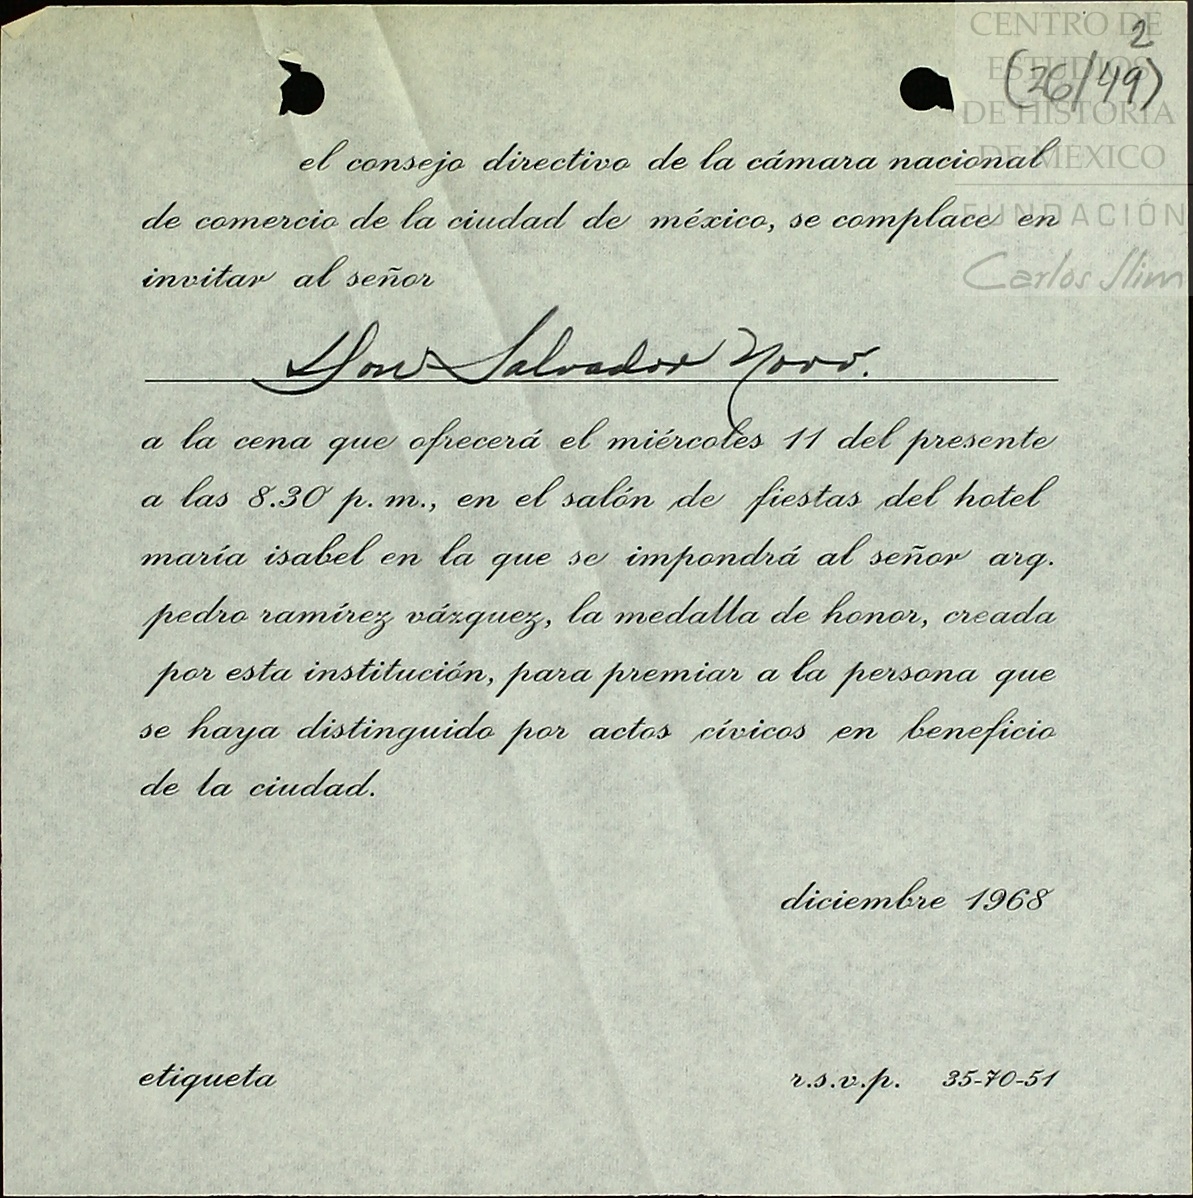 CENTRO DE
ESTUDIOS
DE HISTORIA
DE MÉXICO
FUNDACIÓN
Carlos Slim
2
(26/49)
el consejo directivo de la cámara nacional
de comercio de la ciudad de méxico, se complace en
invitar al señor
Don Salvador Novo.
a la cena que ofrecerá el miércoles 11 del presente
a las 8.30 p. m., en el salón de fiestas del hotel
maría isabel en la que se impondrá al señor arq.
pedro ramírez vázquez, la medalla de honor, creada
por esta institución, para premiar a la persona que
se haya distinguido por actos cívicos en beneficio
de la ciudad.
diciembre 1968
etiqueta r.s.v.p. 35-70-51